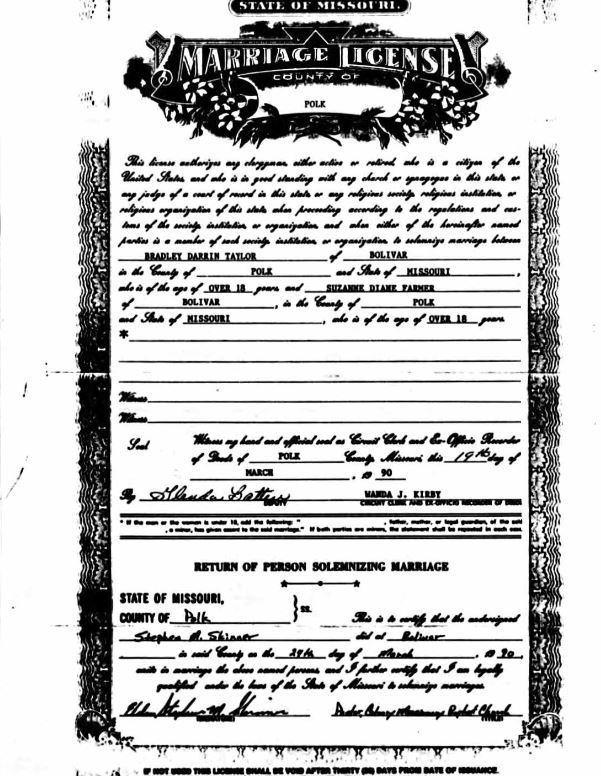 STATE OF MISSOURI.
MARRIAGE LICENSE
COUNTY OF
POLK
This license authorizes any clergyman, either active or retired, who is a citizen of the
United States, and who is in good standing with any church or synagogue in this state, or
any judge of a court of record in this state or any religious society, religious institution, or
religious organization of this state, when proceeding according to the regulations and cus-
toms of the society, institution, or organization, and when either of the hereinafter named
parties is a member of such society, institution, or organization, to solemnize marriage between
BRADLEY DARRIN TAYLOR of BOLIVAR
in the County of POLK and State of MISSOURI,
who is of the age of OVER 18 years, and SUZANNE DIANE FARMER
of BOLIVAR, in the County of POLK
and State of MISSOURI, who is of the age of OVER 18 years.
*
Witness
Witness
Seal Witness my hand and official seal as Circuit Clerk and Ex-Officio Recorder
of Deeds of POLK County, Missouri, this 19th day of
MARCH, 19 90
By Glenda WANDA J. KIRBY
DEPUTY CIRCUIT CLERK AND EX-OFFICIO RECORDER OF DEEDS
* If the man or the woman is under 18, add the following: " , father, mother, or legal guardian, of the said
, a minor, has given assent to the said marriage." If both parties are minors, the statement shall be repeated in each case.
RETURN OF PERSON SOLEMNIZING MARRIAGE
STATE OF MISSOURI,
COUNTY OF Polk } ss.
This is to certify that the undersigned
Stephen M. Skinner did at Bolivar
in said County on the 29th day of March, 19 90,
unite in marriage the above named persons, and I further certify that I am legally
qualified under the laws of the State of Missouri to solemnize marriages.
Stephen M. Skinner Baptist Church
(SIGNATURE) (TITLE)
IF NOT USED THIS LICENSE SHALL BE VOID AFTER THIRTY (30) DAYS FROM DATE OF ISSUANCE.